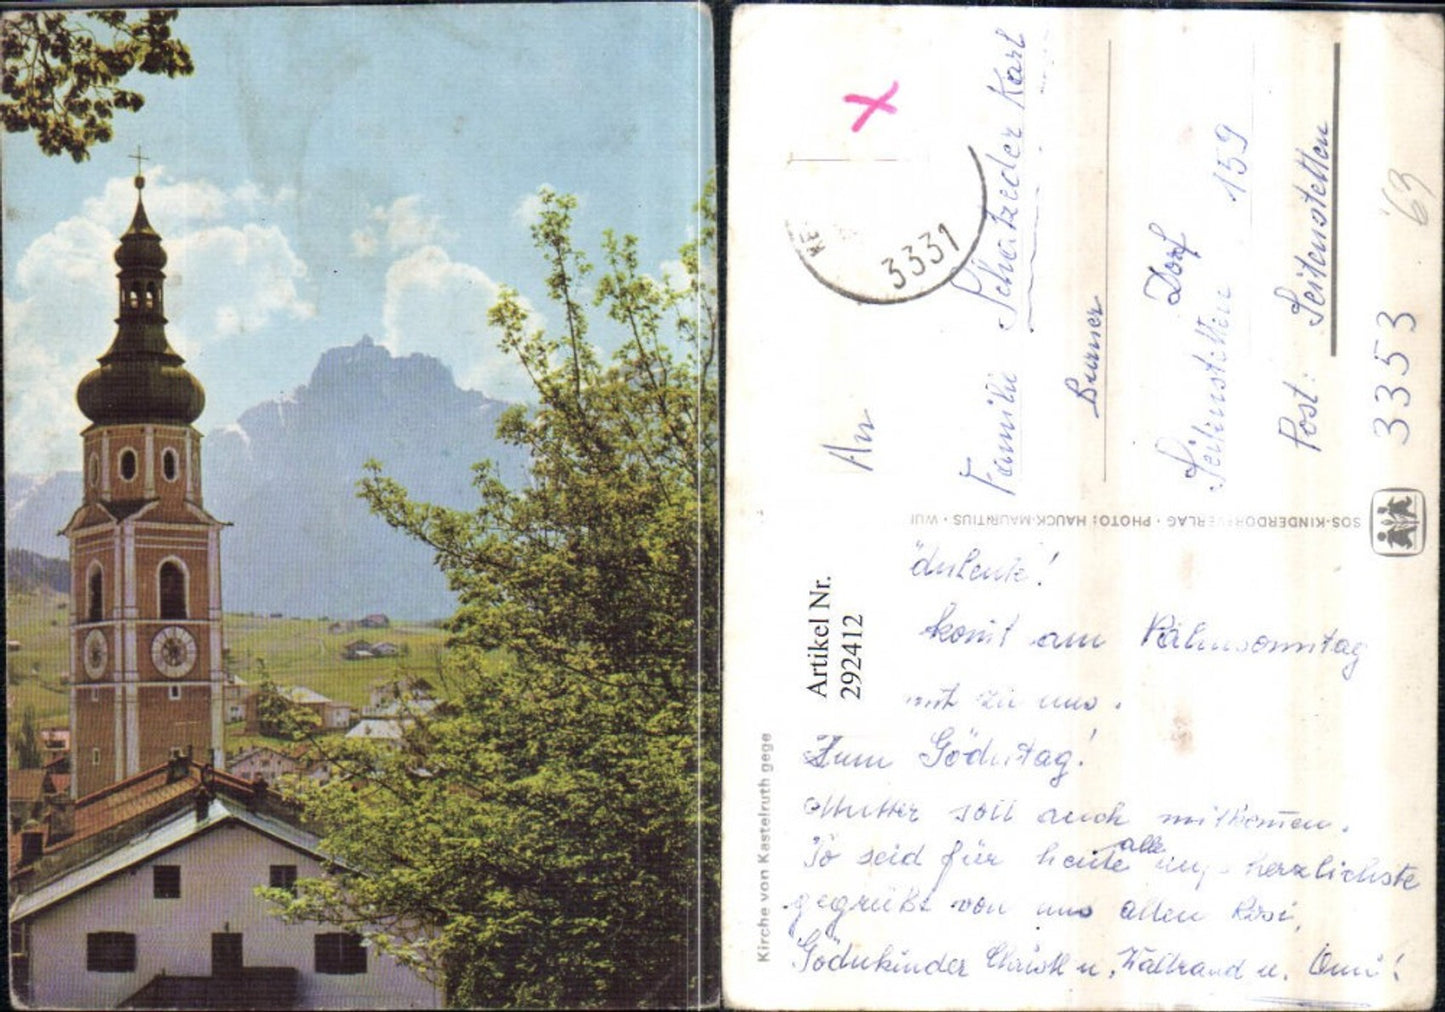 Kirche von Kastelruth gege
Artikel Nr.
292412
SOS-KINDERDORFVERLAG · PHOTO: HAUCK-MAURITIUS · WUI
3331
An
Familie Schatzeder Karl
Bauer
Dorf
Seitenstetten 159
Post: Seitenstetten
3353
'63
Ödnleute!
kommt am Palmsonntag
mit zu uns.
Zum Gödntag!
Mutter soll auch mitkommen.
So seid für heute alle herzlichste
gegrüßt von uns allen Rosi,
Gödnkinder Christl u. Waltraud u. Omi!